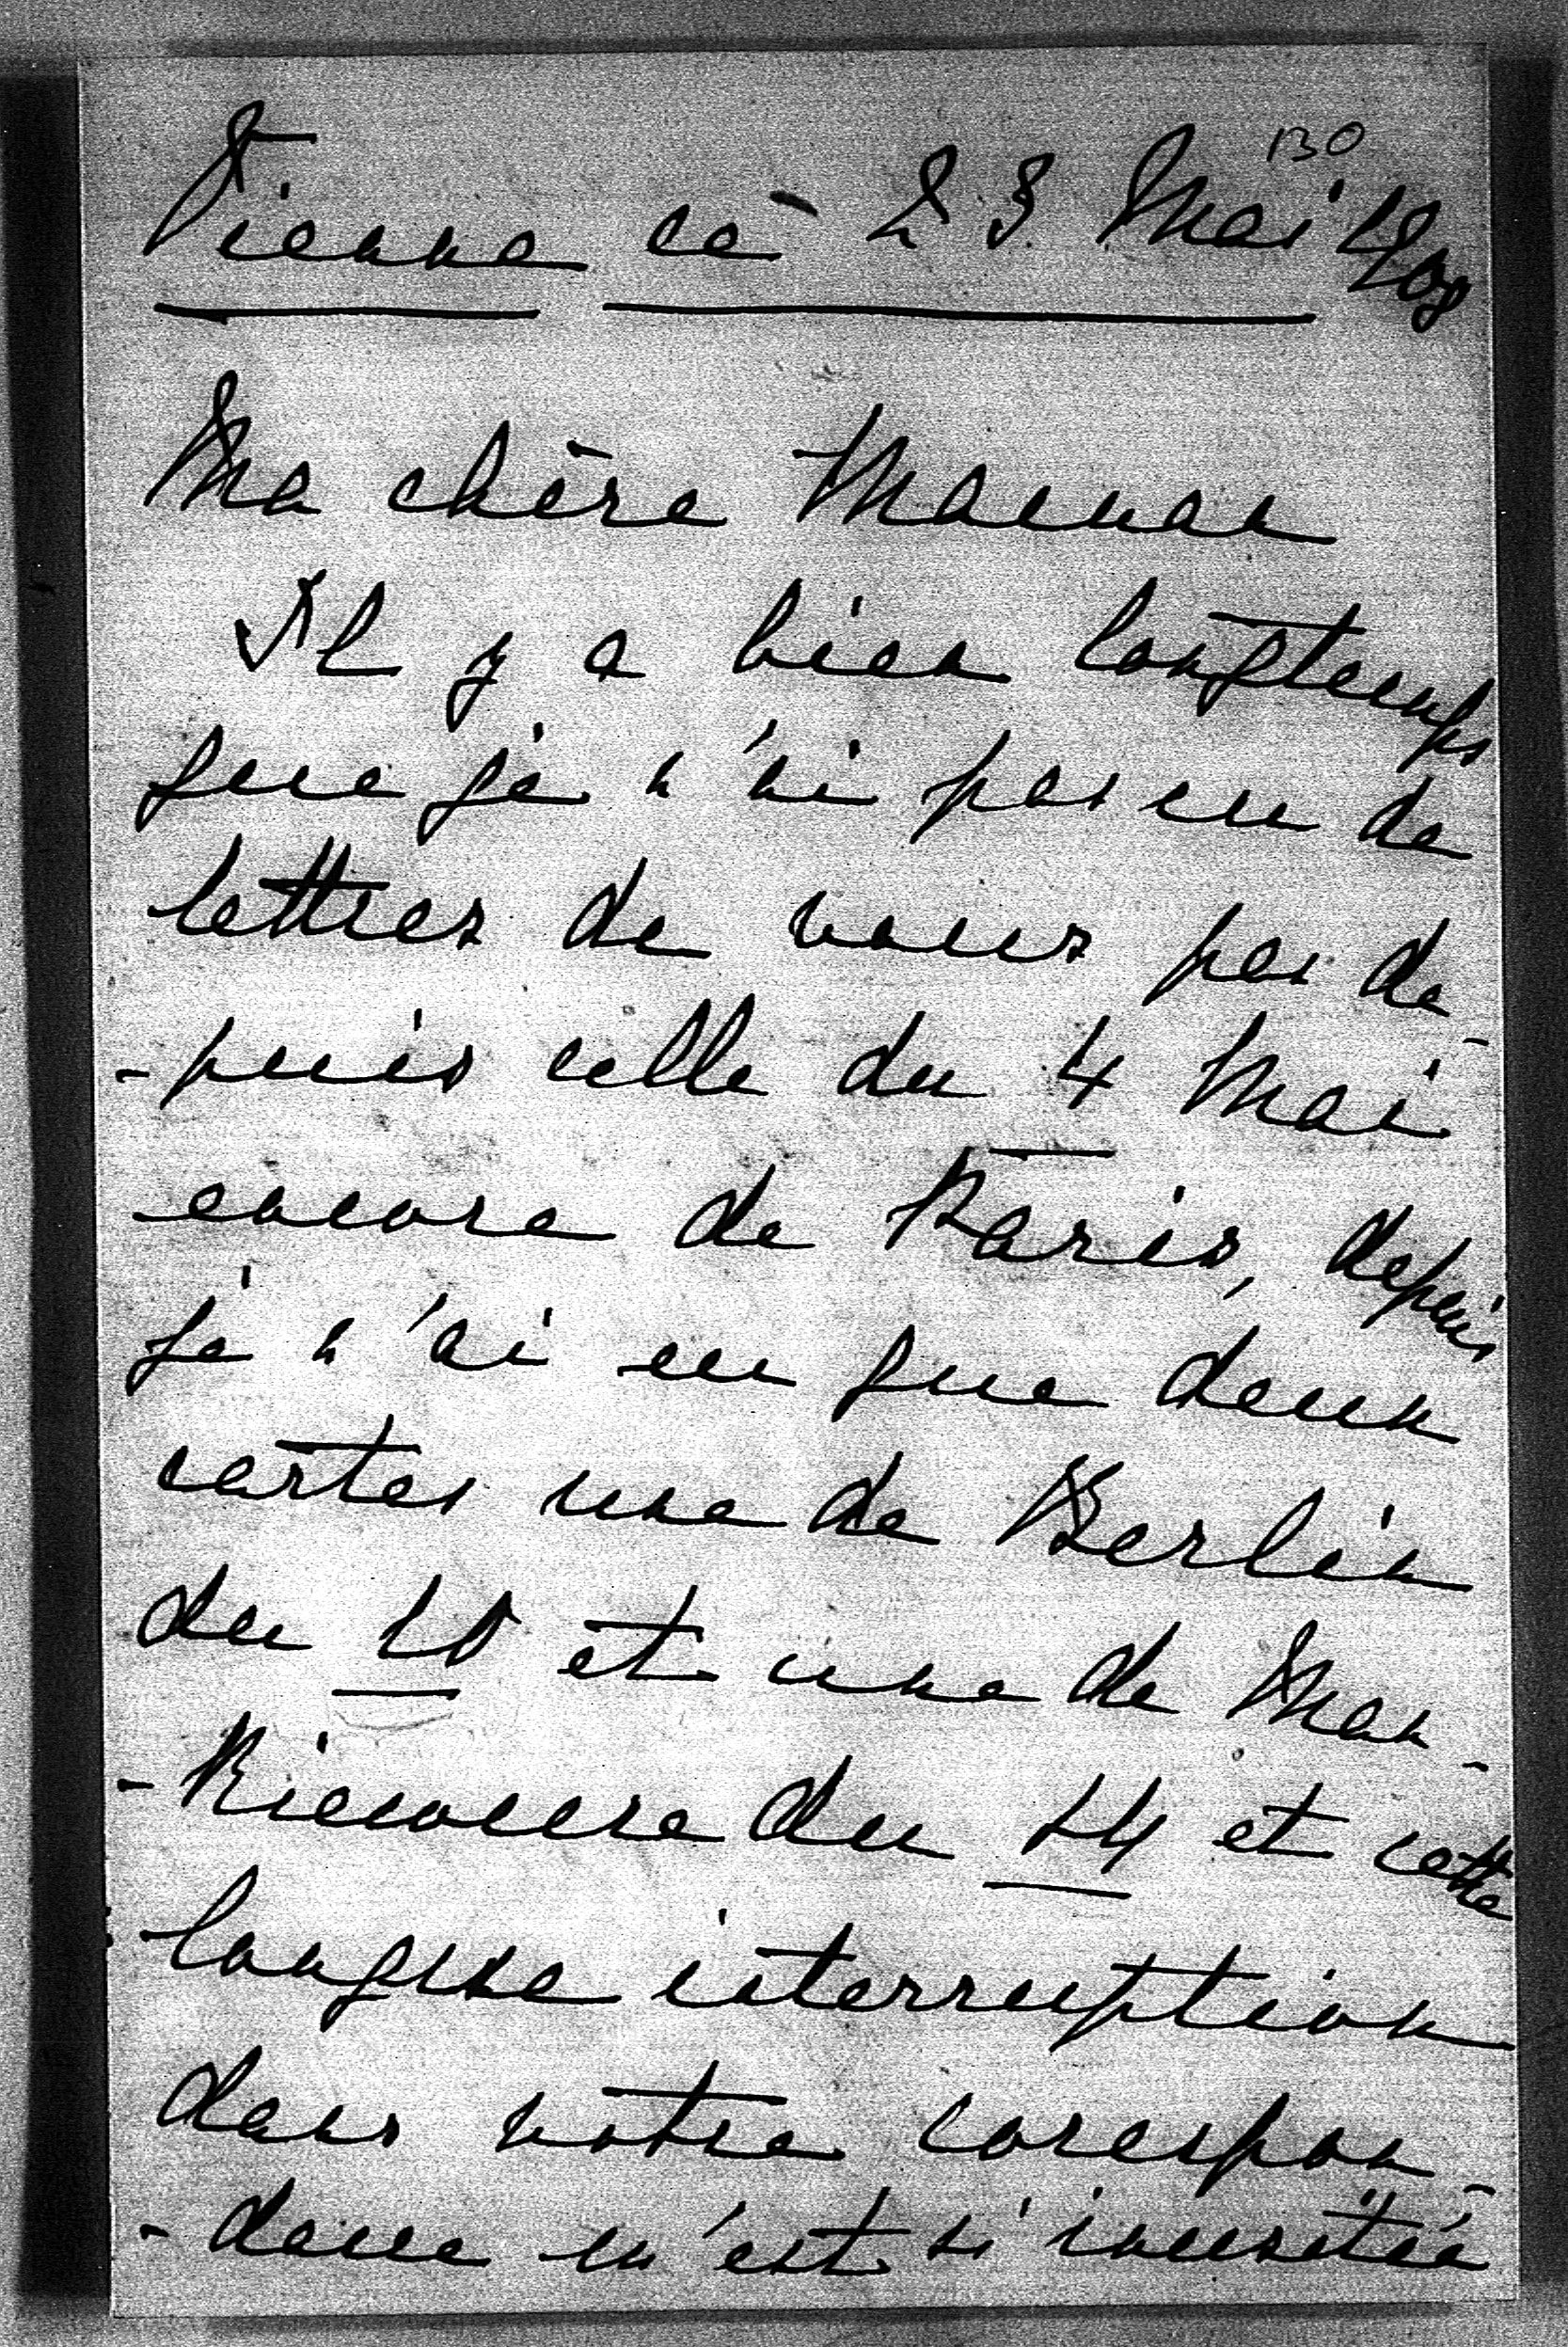 130
Vienne ce 23 Mai 1908
Ma chère Maman
Il y a bien longtemps
que je n'ai pas eu de
lettres de vous pas de-
-puis celle du 4 Mai
encore de Paris, depuis
je n'ai eu que deux
cartes une de Berlin
du 10 et une de Man-
du 14 et cette
longue interruption
dans notre correspon-
-dance m'est si inusitée